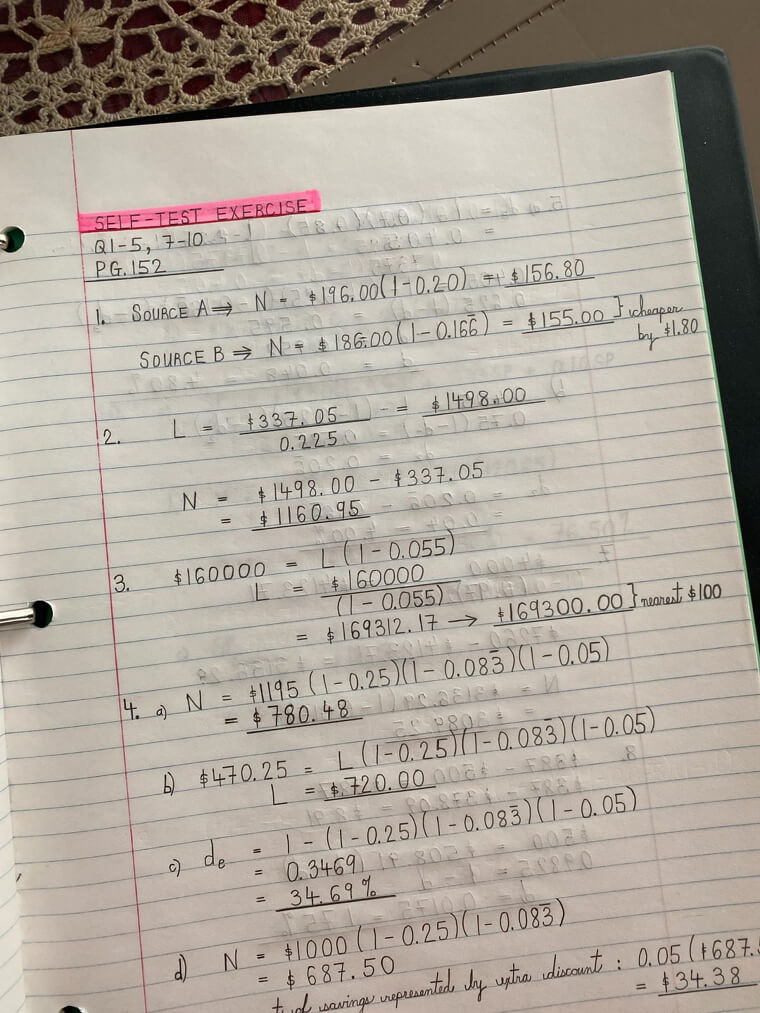 SELF-TEST EXERCISE
Q1-5, 7-10
PG. 152
1. SOURCE A ⇒ N = $196.00(1-0.20) = $156.80
SOURCE B ⇒ N = $186.00(1-0.166̄) = $155.00 } cheaper by $1.80
2. L = $337.05 / 0.225 = $1498.00
N = $1498.00 - $337.05
= $1160.95
3. $160000 = L(1-0.055)
L = $160000 / (1-0.055)
= $169312.17 → $169300.00 } nearest $100
4. a) N = $1195 (1-0.25)(1-0.083̄)(1-0.05)
= $780.48
b) $470.25 = L(1-0.25)(1-0.083̄)(1-0.05)
L = $720.00
c) de = 1-(1-0.25)(1-0.083̄)(1-0.05)
= 0.3469
= 34.69%
d) N = $1000 (1-0.25)(1-0.083̄)
= $687.50
of savings represented by extra discount : 0.05 ($687.5
= $34.38